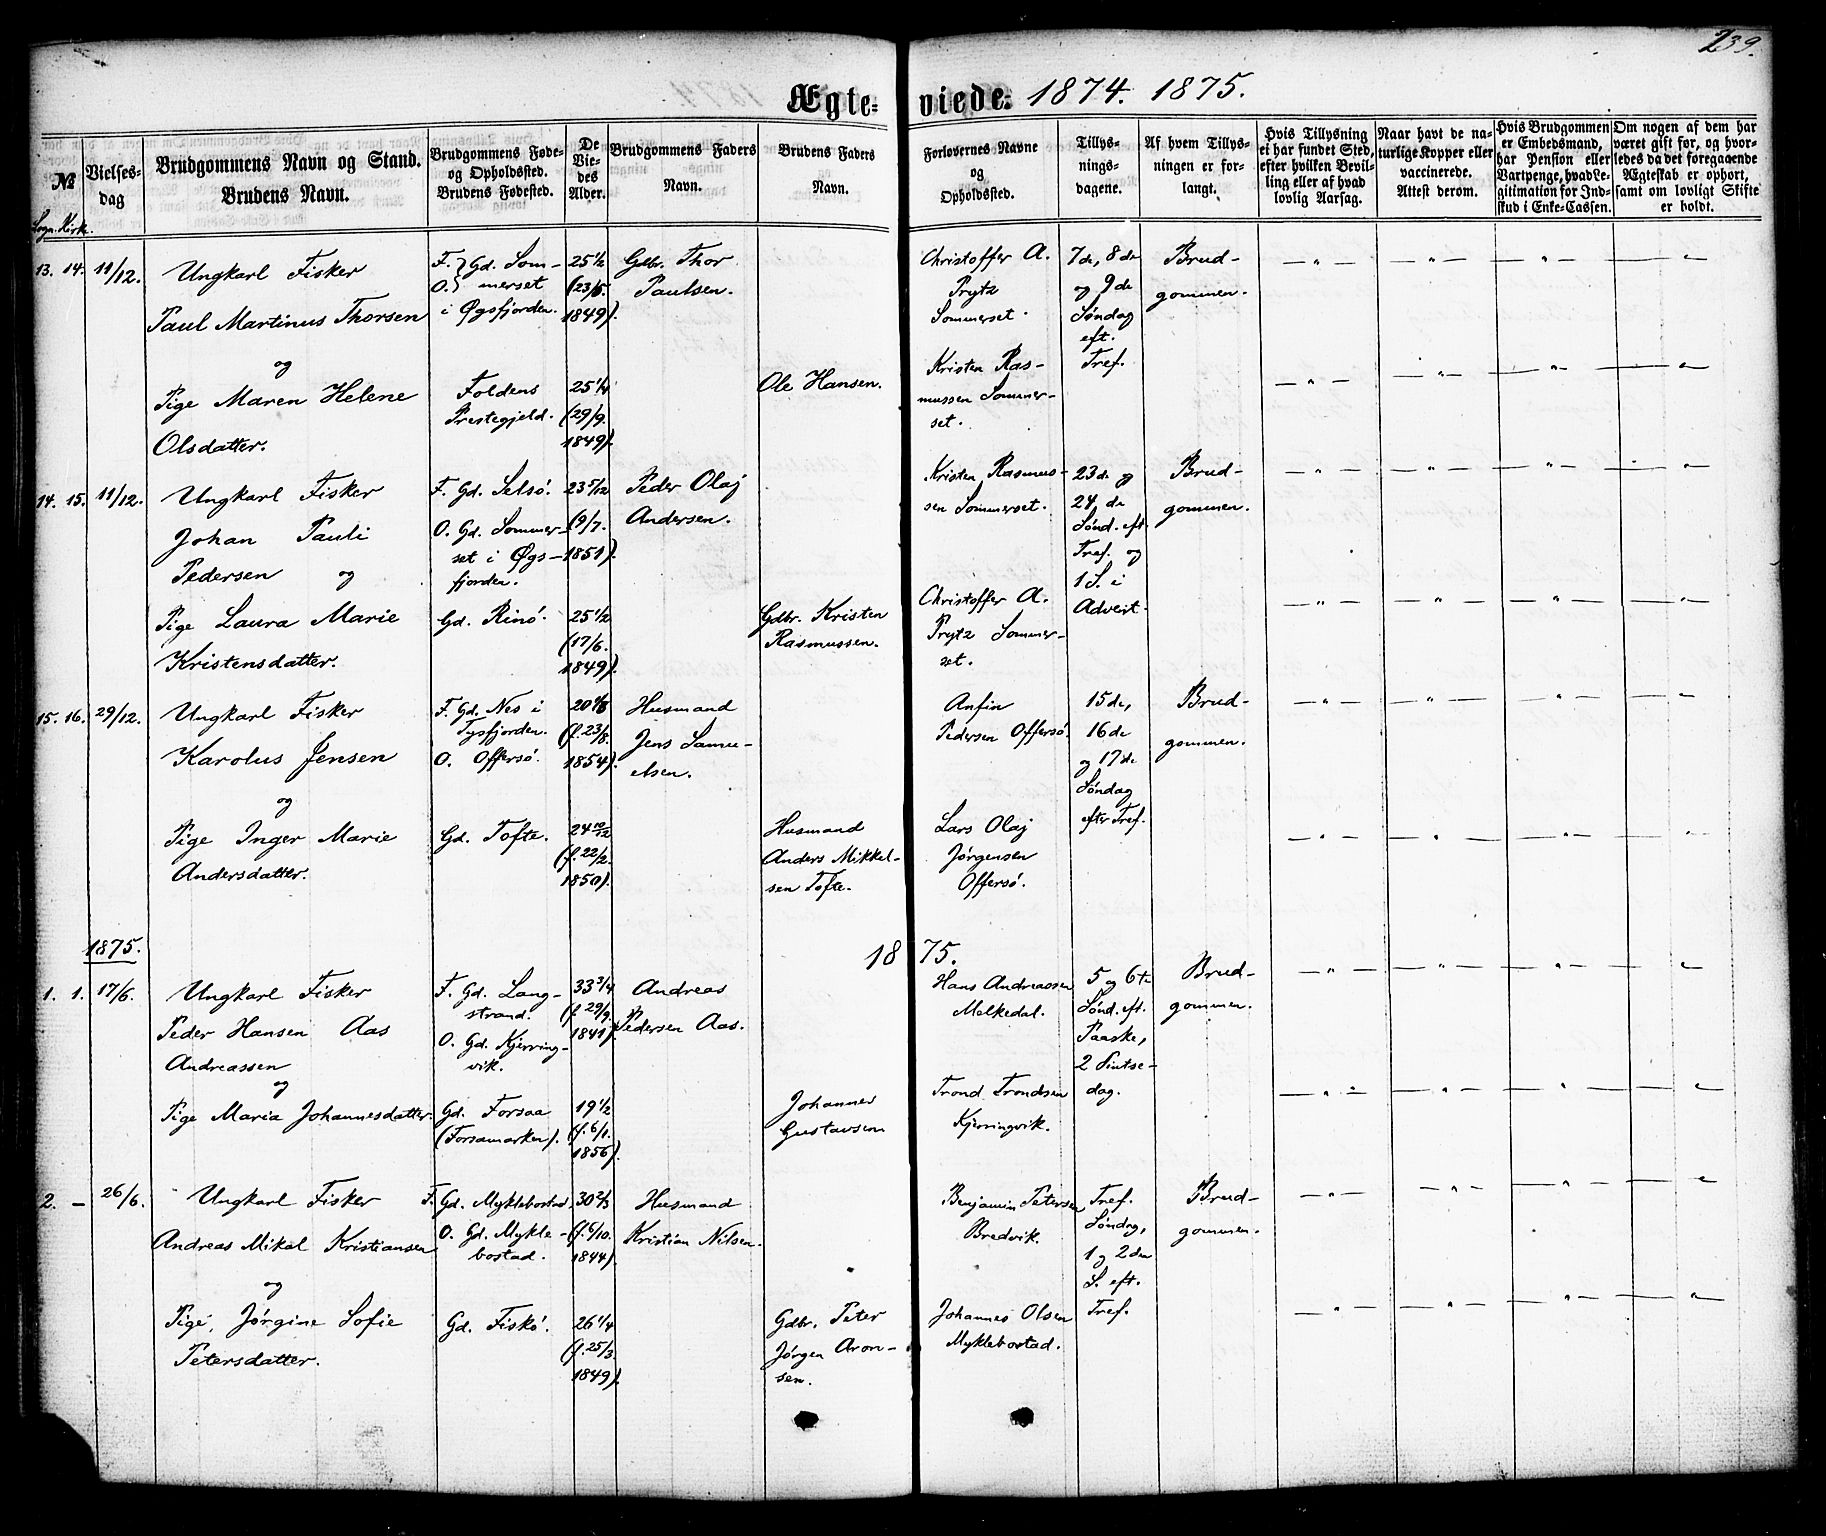 239.
Ægteviede: 1874. 1875.
№
Sogn. Kirk.
Vielsesdag
Brudgommens Navn og Stand.
Brudens Navn.
Brudgommens Fødeog Opholdssted.
Brudens Fødested.
De
Viedes
Alder.
Brudgommens Faders
Navn.
Brudens Faders
Navn.
Forlovernes Navne
og
Opholdssted.
Tillysningsdagene.
Af hvem Tillysningen er forlangt.
Hvis Tillysning
ei har fundet Sted,
efter hvilken Bevilling eller af hvad
lovlig Aarsag.
Naar havt de naturlige Kopper eller
vaccinerede.
Attest derom.
Hvis Brudgommen
er Embedsmand,
har Pension eller
Vartpenge, hvad Legitimation for Indskud i Enke-Cassen.
Om nogen af dem har
været gift før, og hvorledes da det foregaaende
Ægteskab er ophørt,
samt om lovligt Skifte
er holdt.
13. 14. 11/12.
Ungkarl Fisker
Paul Martinus Thorsen
og
Pige Maren Helene
Olsdatter.
F. } Gd. Som-
O. } merset
i Øgsfjorden.
Foldens
Prestegjeld.
25 1/2
(23/5.
1849).
25 1/4
(29/9.
1849).
Gdbr. Thor
Paulsen.
Ole Hansen.
Christoffer A.
Prytz
Sommerset.
Kristen Ras-
mussen Sommer-
set.
7de, 8de
og 9de
Søndag
eft.
Tref.
Brud-
gommen.
14. 15. 11/12.
Ungkarl Fisker
Johan Pauli
Pedersen og
Pige Laura Marie
Kristensdatter.
F. Gd. Selsö.
O. Gd. Sommer-
set i Øgs-
fjorden.
Gd. Rinö.
23 5/12
(9/7.
1851).
25 1/2
(17/6.
1849).
Peder Olaj
Andersen.
Gdbr. Kristen
Rasmussen.
Kristen Rasmus-
sen Sommerset.
Christoffer A.
Prytz Sommer-
set.
23de og
24de
Sönd. eft.
Tref. og
1 S. i
Advent.
Brud-
gommen.
15. 16. 29/12.
Ungkarl Fisker
Karolus Jensen
og
Pige Inger Marie
Andersdatter.
F. Gd. Nes i
Tysfjorden.
O. Offersö.
Gd. Tofte.
(f. 23/8.
1854).
24 10/12
(f. 22/2.
1850).
Husmand
Jens Samu-
elsen.
Husmand
Anders Mikkel-
sen Tofte.
Anfin
Pedersen Offersö.
Lars Olaj
Jørgensen
Offersö.
15de,
16de
og 17de
Søndag
efter Tref.
Brud-
gommen.
1875.
1875.
1. 1. 17/6.
Ungkarl Fisker
Peder Hansen Aas
Andreassen
og
Pige Maria Johannesdatter.
F. Gd. Lang-
strand.
O. Gd. Kjerring-
vik.
Gd. Forsaa
(Forsamarken).
33 3/4
(f. 29/9.
1841).
19 1/2
(f. 6/1.
1856).
Andreas
Pedersen Aas.
Johannes
Gustavsen
Hans Andreassen
Melkedal.
Trond Trondsen
Kjerringvik.
5 og 6te
Sønd. eft.
Paaske,
2 Pintse-
dag.
Brud-
gommen.
2. — 26/6.
Ungkarl Fisker
Andreas Mikal Kristiansen
og
Pige, Jørgine Sofie
Petersdatter.
F. Gd. Myklebostad.
O. Gd. Mykle-
bostad.
Gd. Fiskö.
30 2/3
(f. 6/10.
1844).
26 1/4
(f. 25/3.
1849).
Husmand
Kristian Nilsen.
Gdbr. Peter
Jørgen Aron-
sen.
Benjamin Petersen
Bredvik.
Johannes Olsen
Myklebostad.
Tref.
Søndag,
1 og 2den
S. eft.
Tref.
Brud-
gommen.